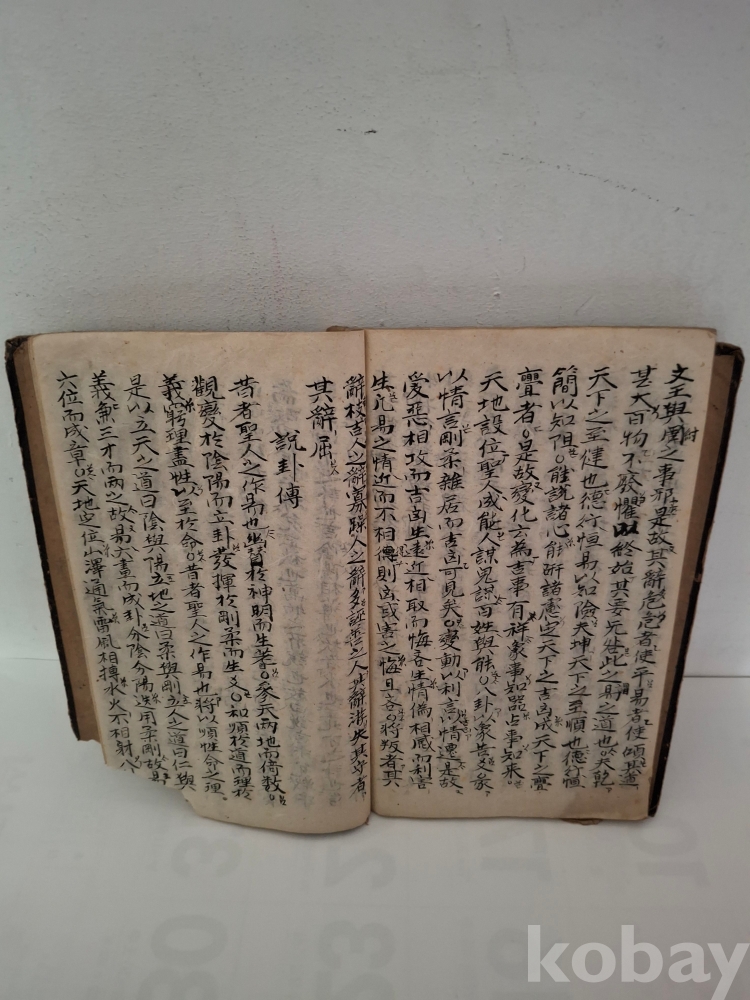 文王與紂之事邪是故其辭危危者使平易者使傾其道
甚大百物不廢懼以終始其要无咎此之易之道也夫乾
天下之至健也德行恒易以知險夫坤天下之至順也德行恒
簡以知阻能說諸心能硏諸慮定天下之吉凶成天下之亹
亹者是故變化云為吉事有祥象事知器占事知來
天地設位聖人成能人謀鬼謀百姓與能八卦以象告爻彖
以情言剛柔雜居而吉凶可見矣變動以利言情遷是故
愛惡相攻而吉凶生遠近相取而悔吝生情僞相感而利害
生凡易之情近而不相得則凶或害之悔且吝將叛者其
辭枝吉人之辭寡躁人之辭多誣善之人其辭游失其守者
其辭屈
說卦傳
昔者聖人之作易也幽贊於神明而生蓍參天兩地而倚數
觀變於陰陽而立卦發揮於剛柔而生爻和順於道而理於
義窮理盡性以至於命昔者聖人之作易也將以順性命之理
是以立天之道曰陰與陽立地之道曰柔與剛立人之道曰仁與
義兼三才而兩之故易六畫而成卦分陰分陽迭用柔剛故易
六位而成章天地定位山澤通氣雷風相搏水火不相射八
kobay